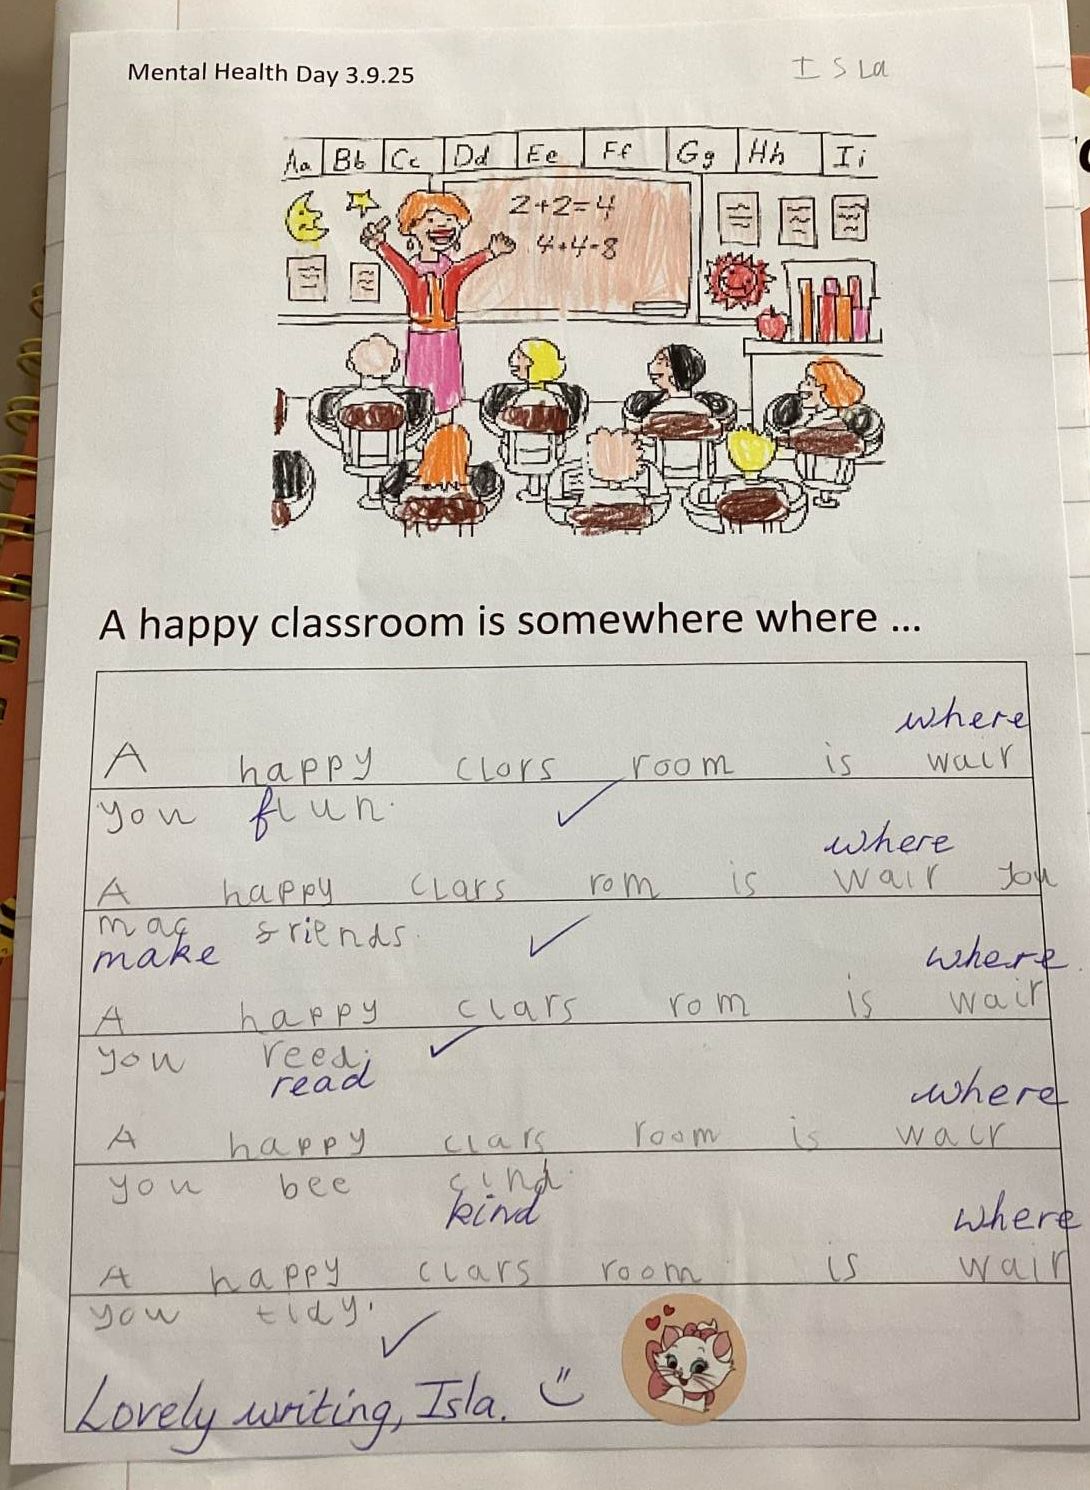 Mental Health Day 3.9.25
ISLa
Aa Bb Cc Dd Ee Ff Gg Hh Ii
2+2=4
4+4=8
A happy classroom is somewhere where ...
where
A happy clors room is wair
you flun.
where
A happy clars rom is wair you
mac friends.
make
where
A happy clars rom is wair
you reed.
read
where
A happy clars room is wair
you bee cind.
kind
where
A happy clars room is wair
you tidy.
Lovely writing, Isla.